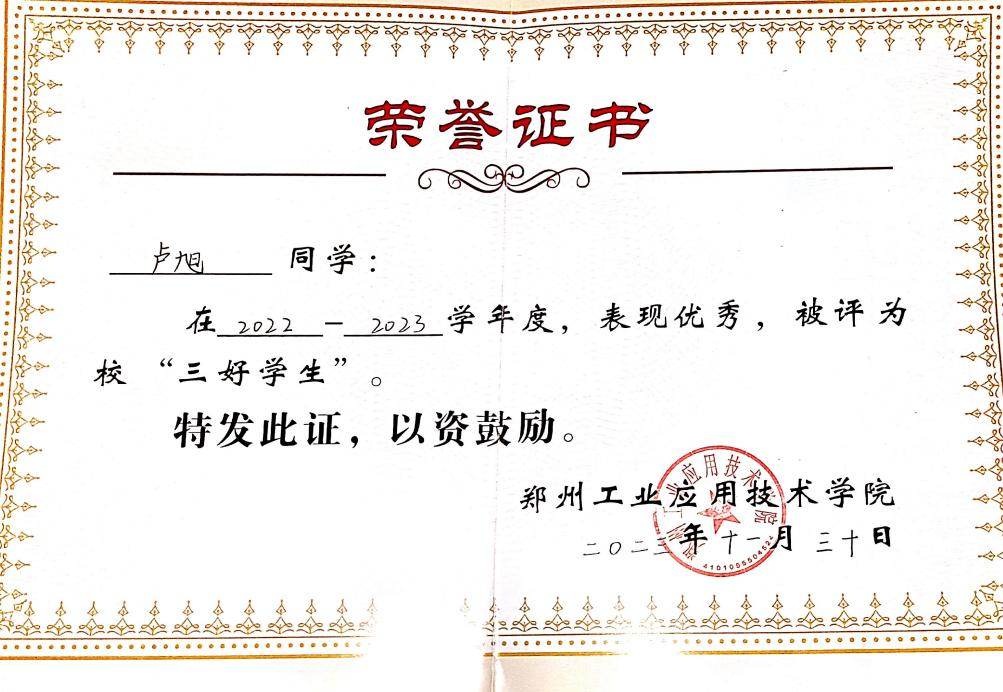 荣誉证书
卢旭 同学：
在 2022 - 2023 学年度，表现优秀，被评为
校“三好学生”。
特发此证，以资鼓励。
郑州工业应用技术学院
二〇二三年十一月三十日
郑州工业应用技术学院
4101055504524